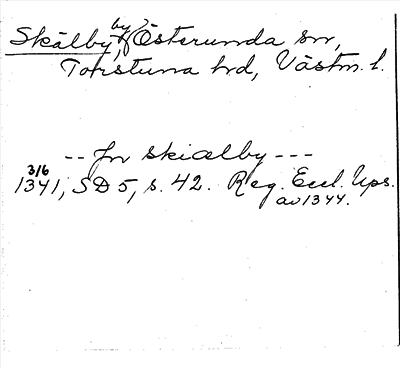 Skälby, by, Österunda sn,
Torstuna hd, Västm. l.
-- Jn skiælby ---
3/6
1341, SD 5, s. 42. Reg. Eccl. Ups.
av 1344.